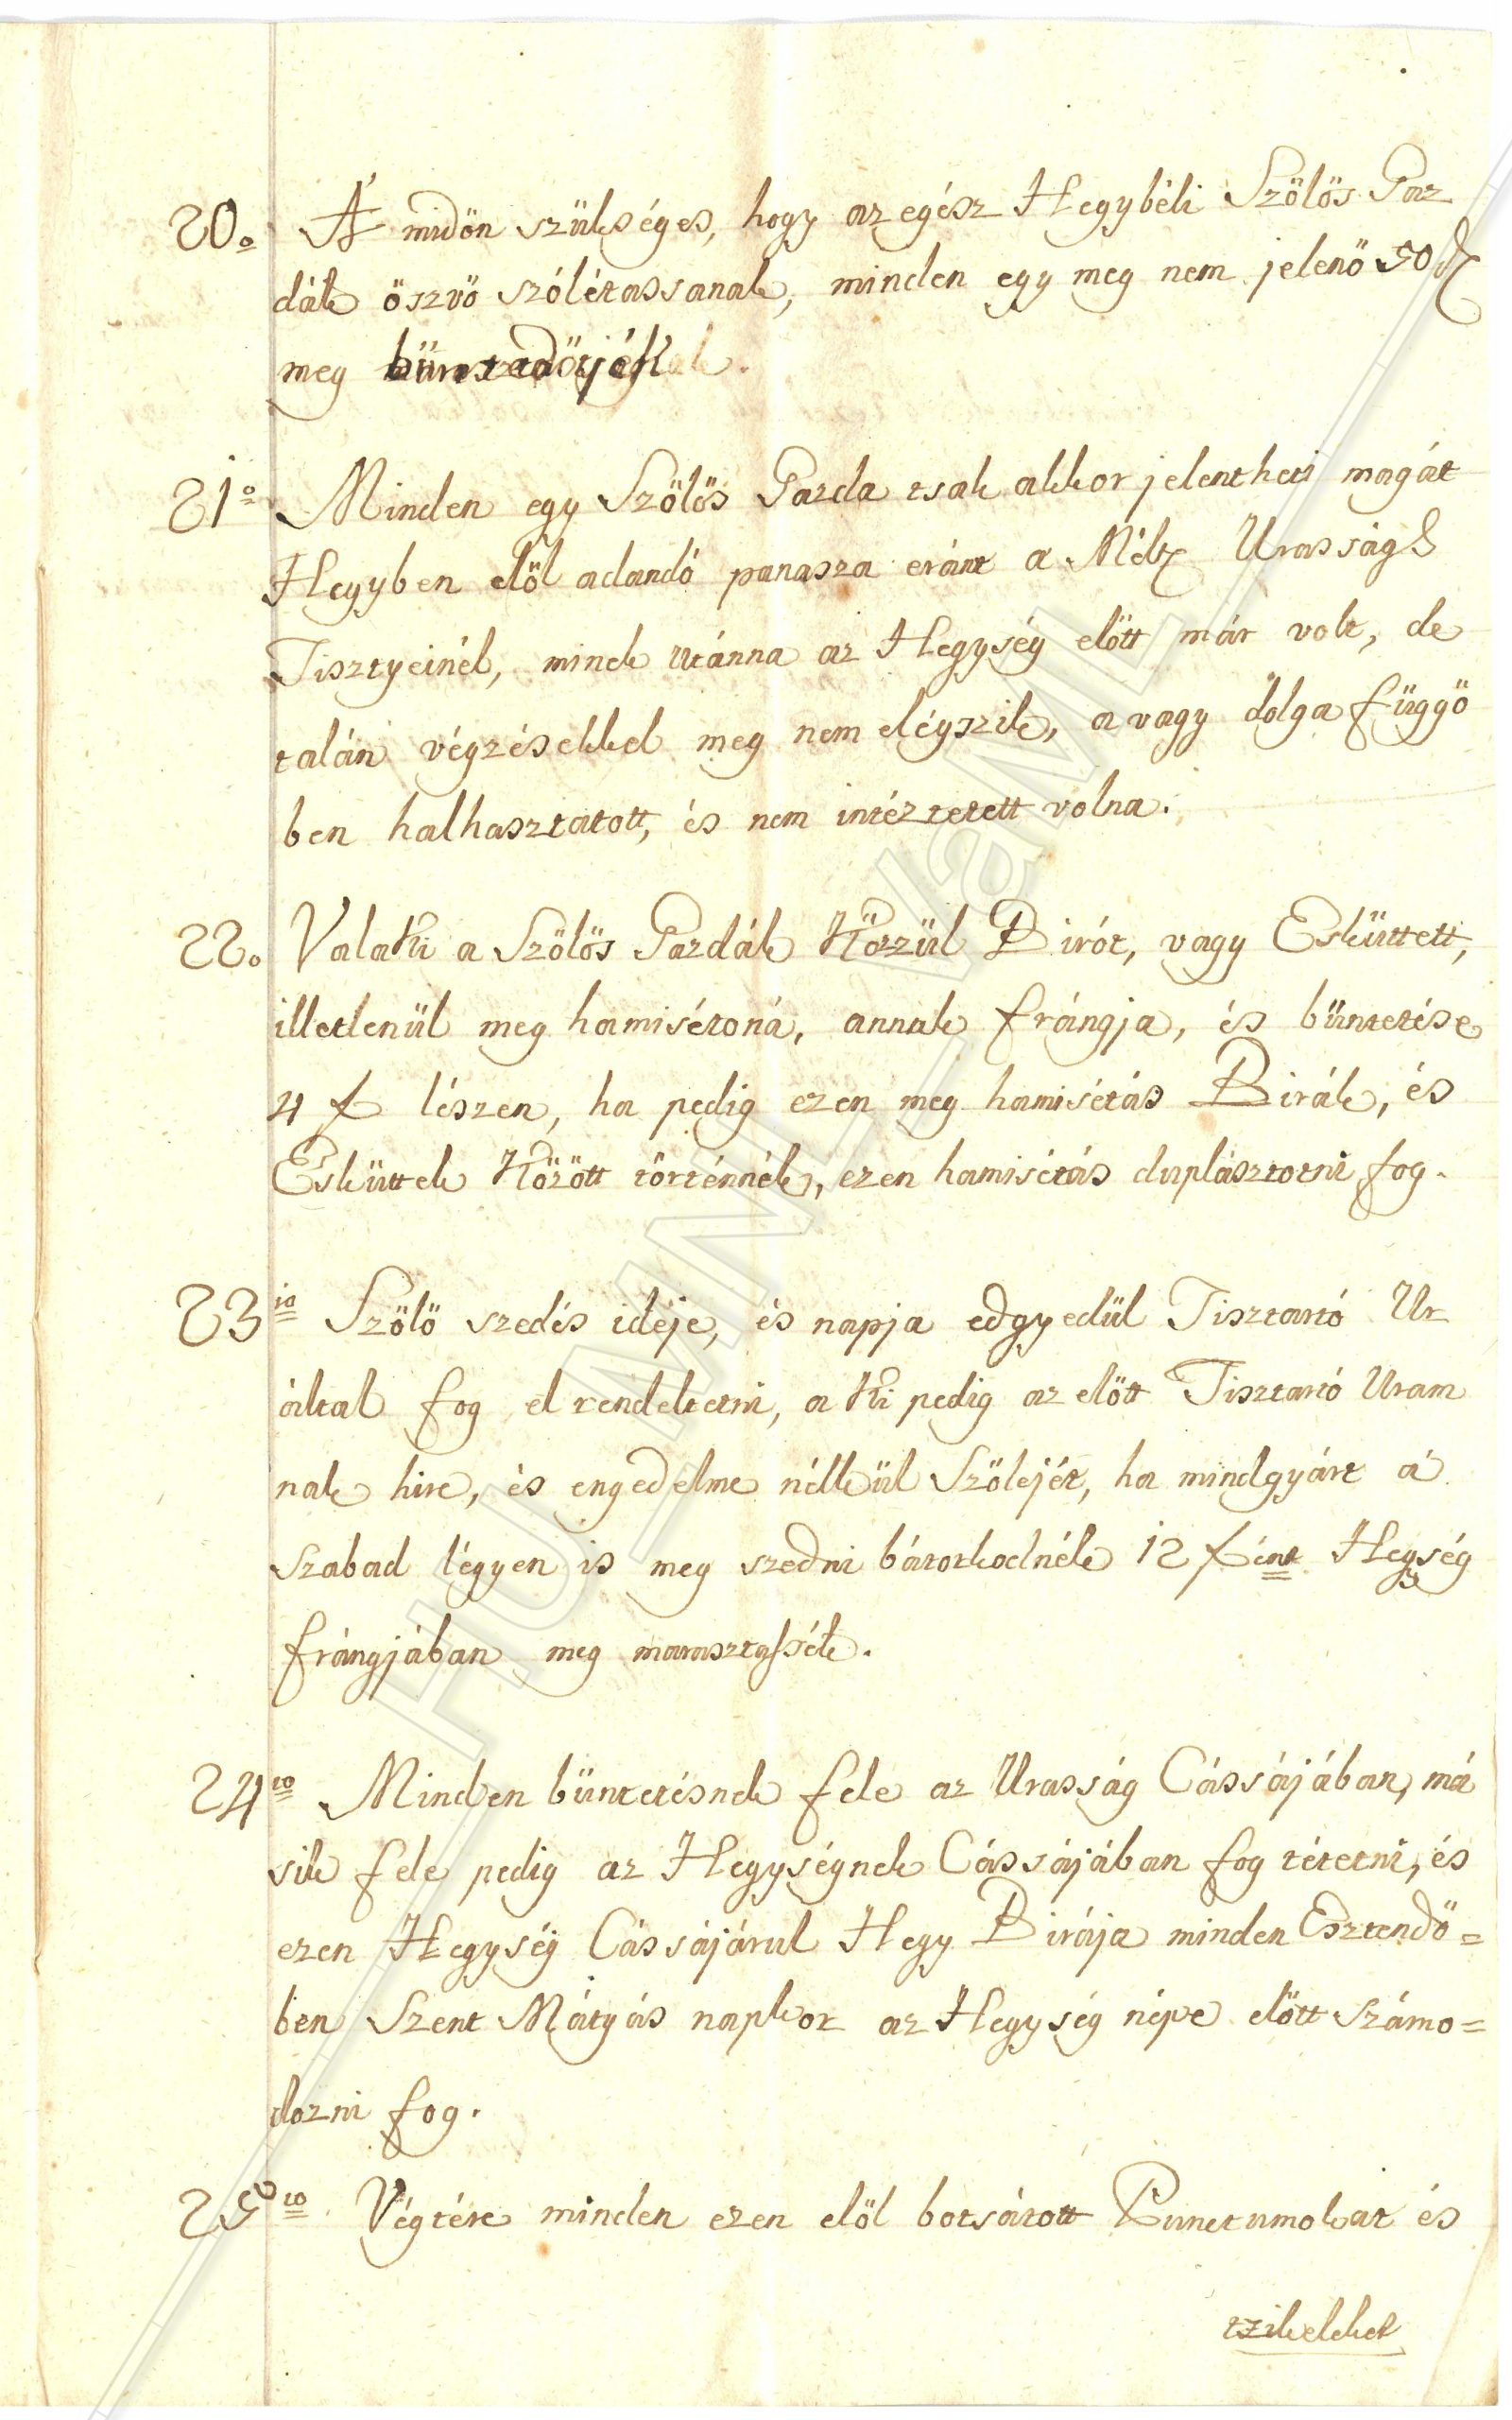 20o A midön szükséges, hogy az egész Hegybéli Szölös Gaz
dák öszvö szólétassanak, minden egy meg nem jelenö 50 d
meg büntetödjék.
21o Minden egy Szölös Gazda tsak akkor jelentheti magát
Hegyben elöl adandó panasza eránt a Mélt Urasságh
Tisztyeinél, minek utánna az Hegység elött már volt, de
talán végzésekkel meg nem elégszik, avagy dolga függö
ben halhasztatott, és nem intéztetett volna.
22o Valaki a Szölös Gazdák Közzül Birót, vagy Esküttett,
illetlenül meg hamisétoná, annak frángja, és büntetése
4 f lészen, ha pedig ezen meg hamisétás Birák, és
Esküttek Között történnék, ezen hamisétás duplásztotni fog.
23io Szölö szedés idéje, és napja edgyedül Tisztartó Ur
által fog el rendeltetni, a Ki pedig az elött Tisztartó Uram
nak hire, és engedelme nélkül Szölejét, ha mindgyárt á
szabad légyen is meg szedni bátorkodnék 12 f ént Hegység
frángjában meg marasztassék.
24to Minden büntetésnek fele az Urasság Cássájában, má
sik fele pedig az Hegységnek Cássájában fog tétetni, és
ezen Hegység Cássájárul Hegy Birája minden Esztendö=
ben Szent Mátyás napkor az Hegység népe elött számo=
dozni fog.
25to Végtére minden ezen elöl botsátott Punctumokat és
tzikelket
HU_MNL_VaML